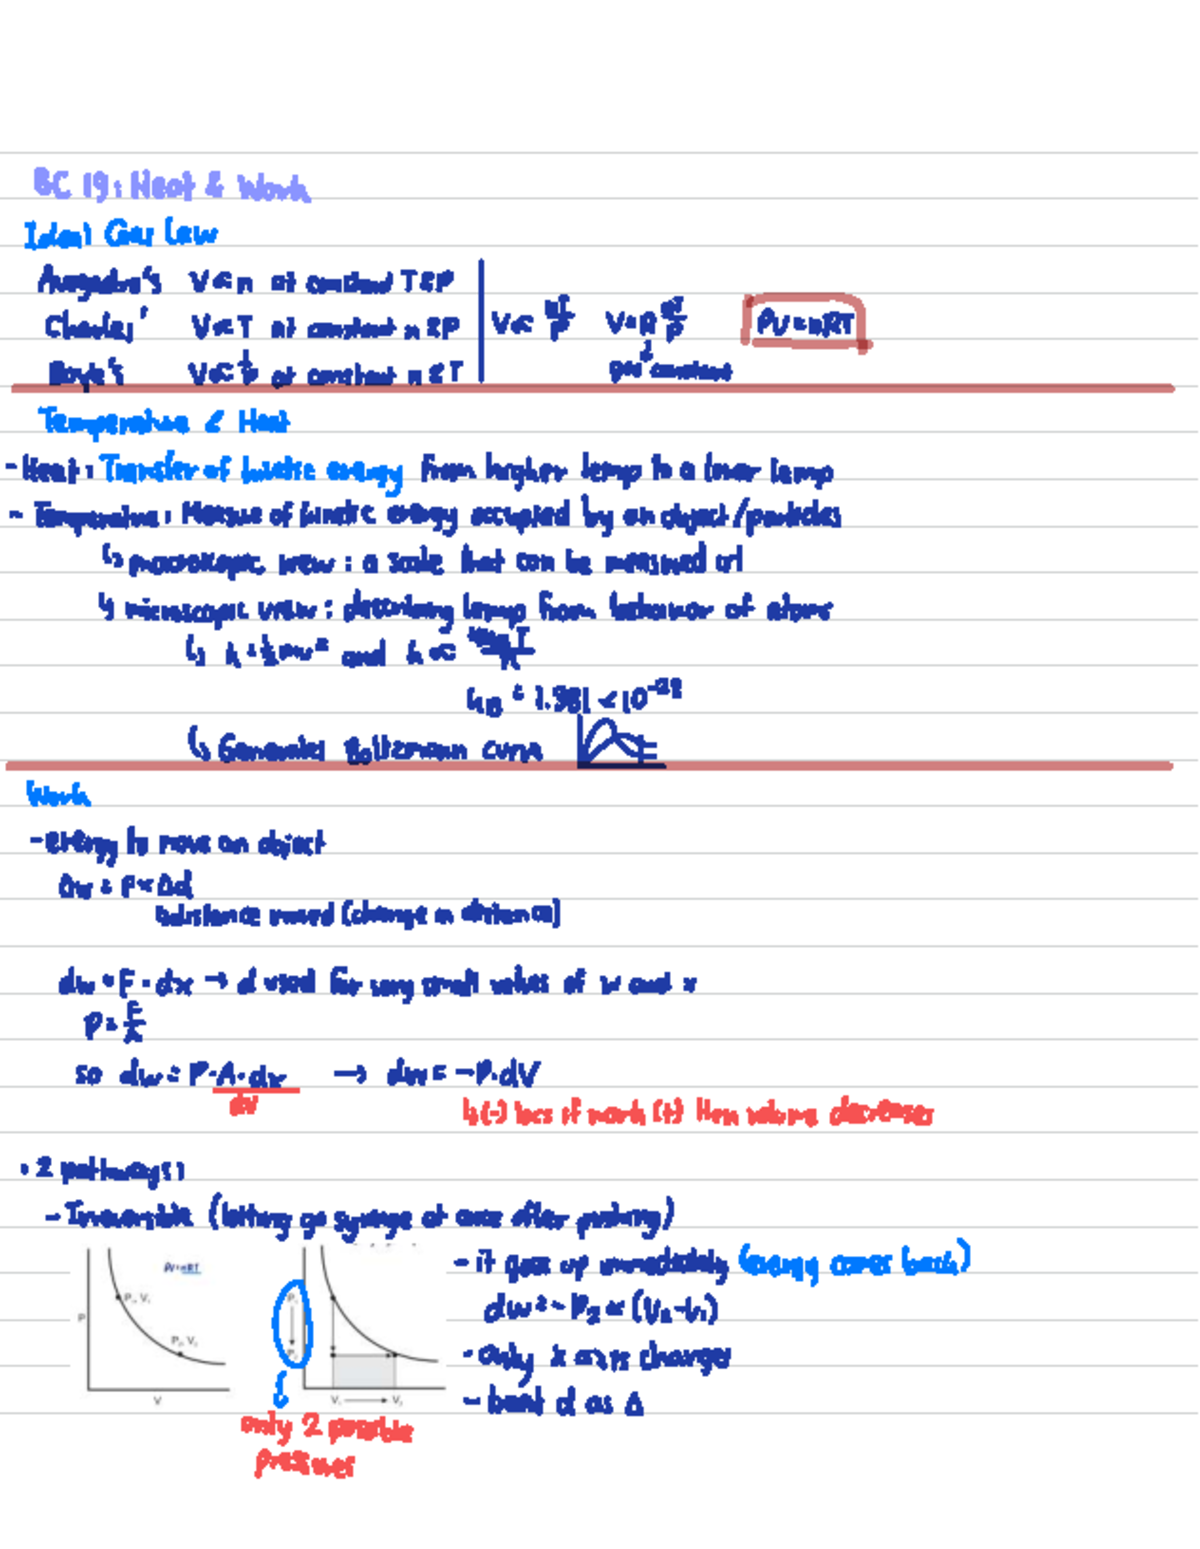 BC 19: Heat & Work
Ideal Gas Law
Avogadro's V ∝ n at constant T & P
Charles' V ∝ T at constant n & P
Boyle's V ∝ 1/P at constant n & T
V ∝ nT/P V = R nT/P PV = nRT
gas constant
Temperature & Heat
- Heat: Transfer of kinetic energy from higher temp to a lower temp
- Temperature: Measure of kinetic energy occupied by an object/particles
↳ macroscopic view: a scale that can be measured of
↳ microscopic view: describing temp from behaviour of atoms
↳ k = ½mv² and k ∝
kB = 1.381 × 10⁻²³
↳ Generates Boltzmann curve
Work
- energy to move an object
Δw = F × Δd
↳ distance moved (change in distance)
dw = F · dx → d used for very small values of w and x
P = F/A
so dw = P · A · dx → dw = -P · dV
dV
↳ (-) bcs if work (+) then volume decreases
• 2 pathways:
- Irreversible (letting go syringe at once after pushing)
PV=nRT
P₁, V₁
P₂, V₂
P
V
P₁
P₂
V₁ → V₂
- it goes up immediately (energy comes back)
dw = -P₂ × (V₂-V₁)
- only x axis changes
- treat d as Δ
only 2 possible
pressures